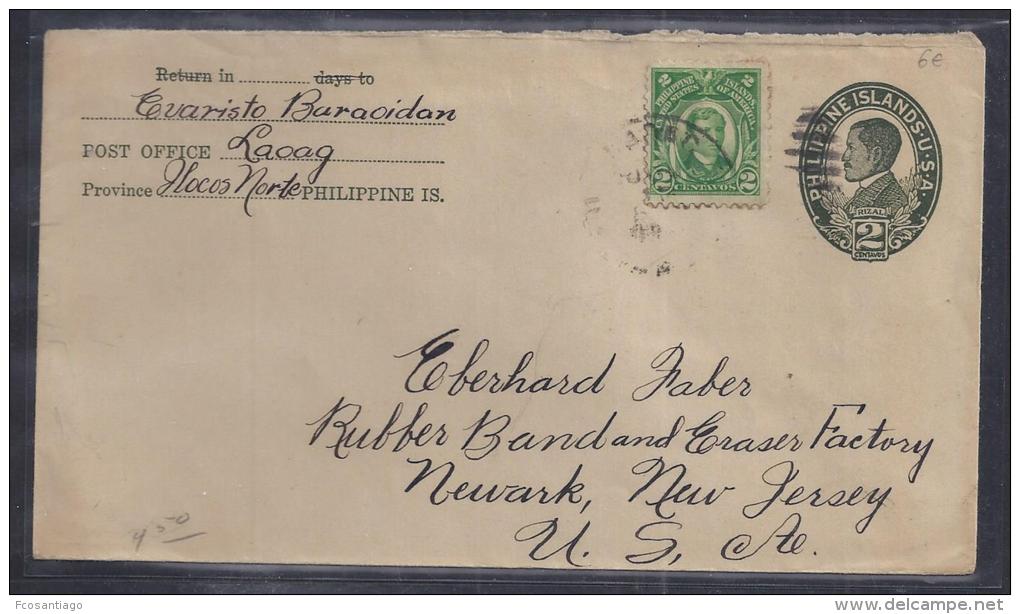 6€
Return in ............ days to
Evaristo Baraoidan
POST OFFICE Laoag
Province Ilocos Norte PHILIPPINE IS.
2 2
PHILIPPINE ISLANDS
UNITED STATES OF AMERICA
2 CENTAVOS 2
PHILIPPINE ISLANDS·U·S·A·
RIZAL
2
CENTAVOS
Eberhard Faber
Rubber Band and Eraser Factory
Newark, New Jersey
U. S. A.
4 50
Fcosantiago
http://www.delcampe.net